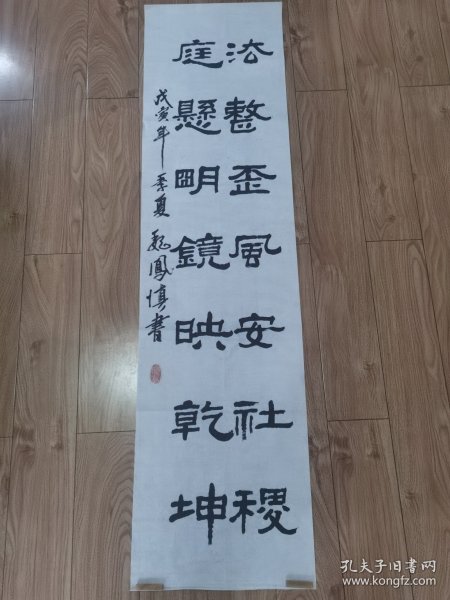 法整歪风安社稷
庭懸明鏡映乾坤
戊寅年季夏魏鳳慎書
孔夫子旧书网
www.kongfz.com